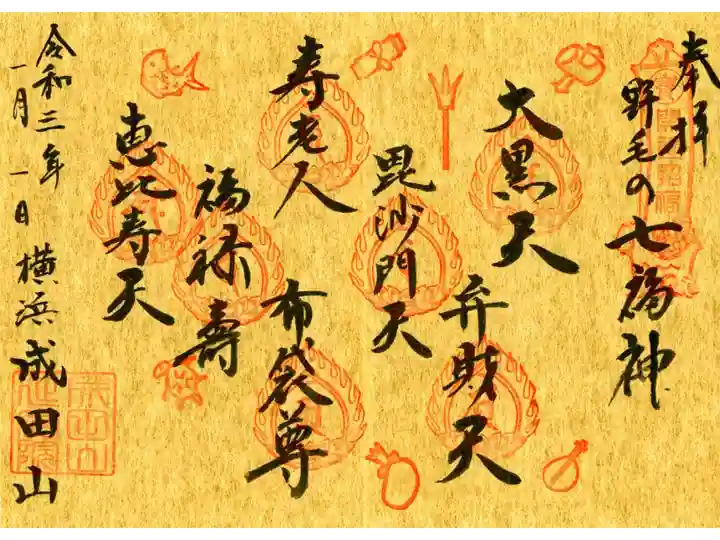 奉拝
野毛の七福神
大黒天
弁財天
毘沙門天
寿老人
布袋尊
福禄壽
恵比寿天
令和三年
一月一日
横浜成田山